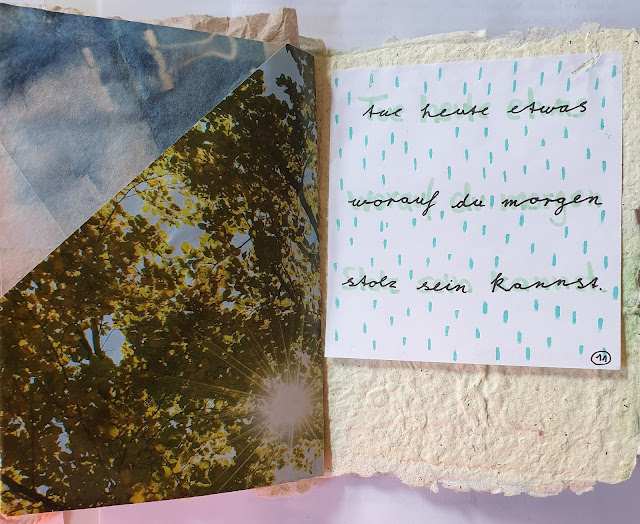 tue heute etwas
worauf du morgen
stolz sein kannst.
11